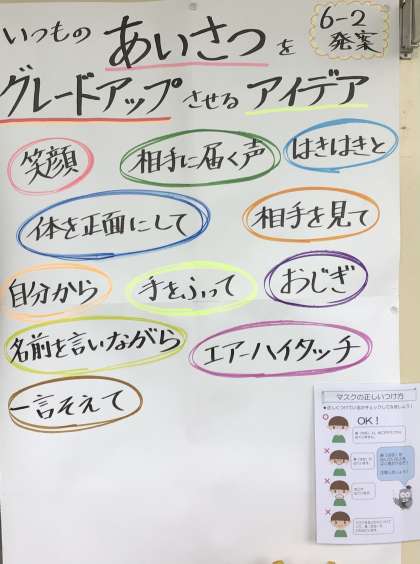 6-2
発案
いつものあいさつを
グレードアップさせるアイデア
笑顔
相手に届く声
はきはきと
体を正面にして
相手を見て
自分から
手をふって
おじぎ
名前を言いながら
エアーハイタッチ
一言そえて
マスクの正しいつけ方
OK!